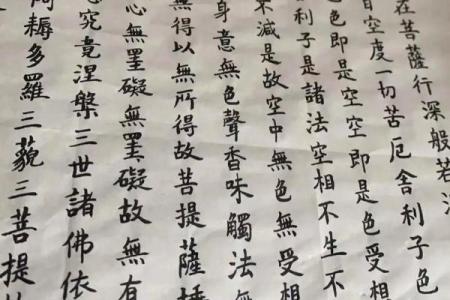 在菩薩行深般若
空度一切苦厄舍利子色
色即是空空即是色受相
利子是諸法空相不生不
不減是故空中無色無受
身意無色聲香味觸法無
無得以無所得故菩提薩埵
心無罣礙無罣礙故無有
究竟涅槃三世諸佛依
耨多羅三藐三菩提